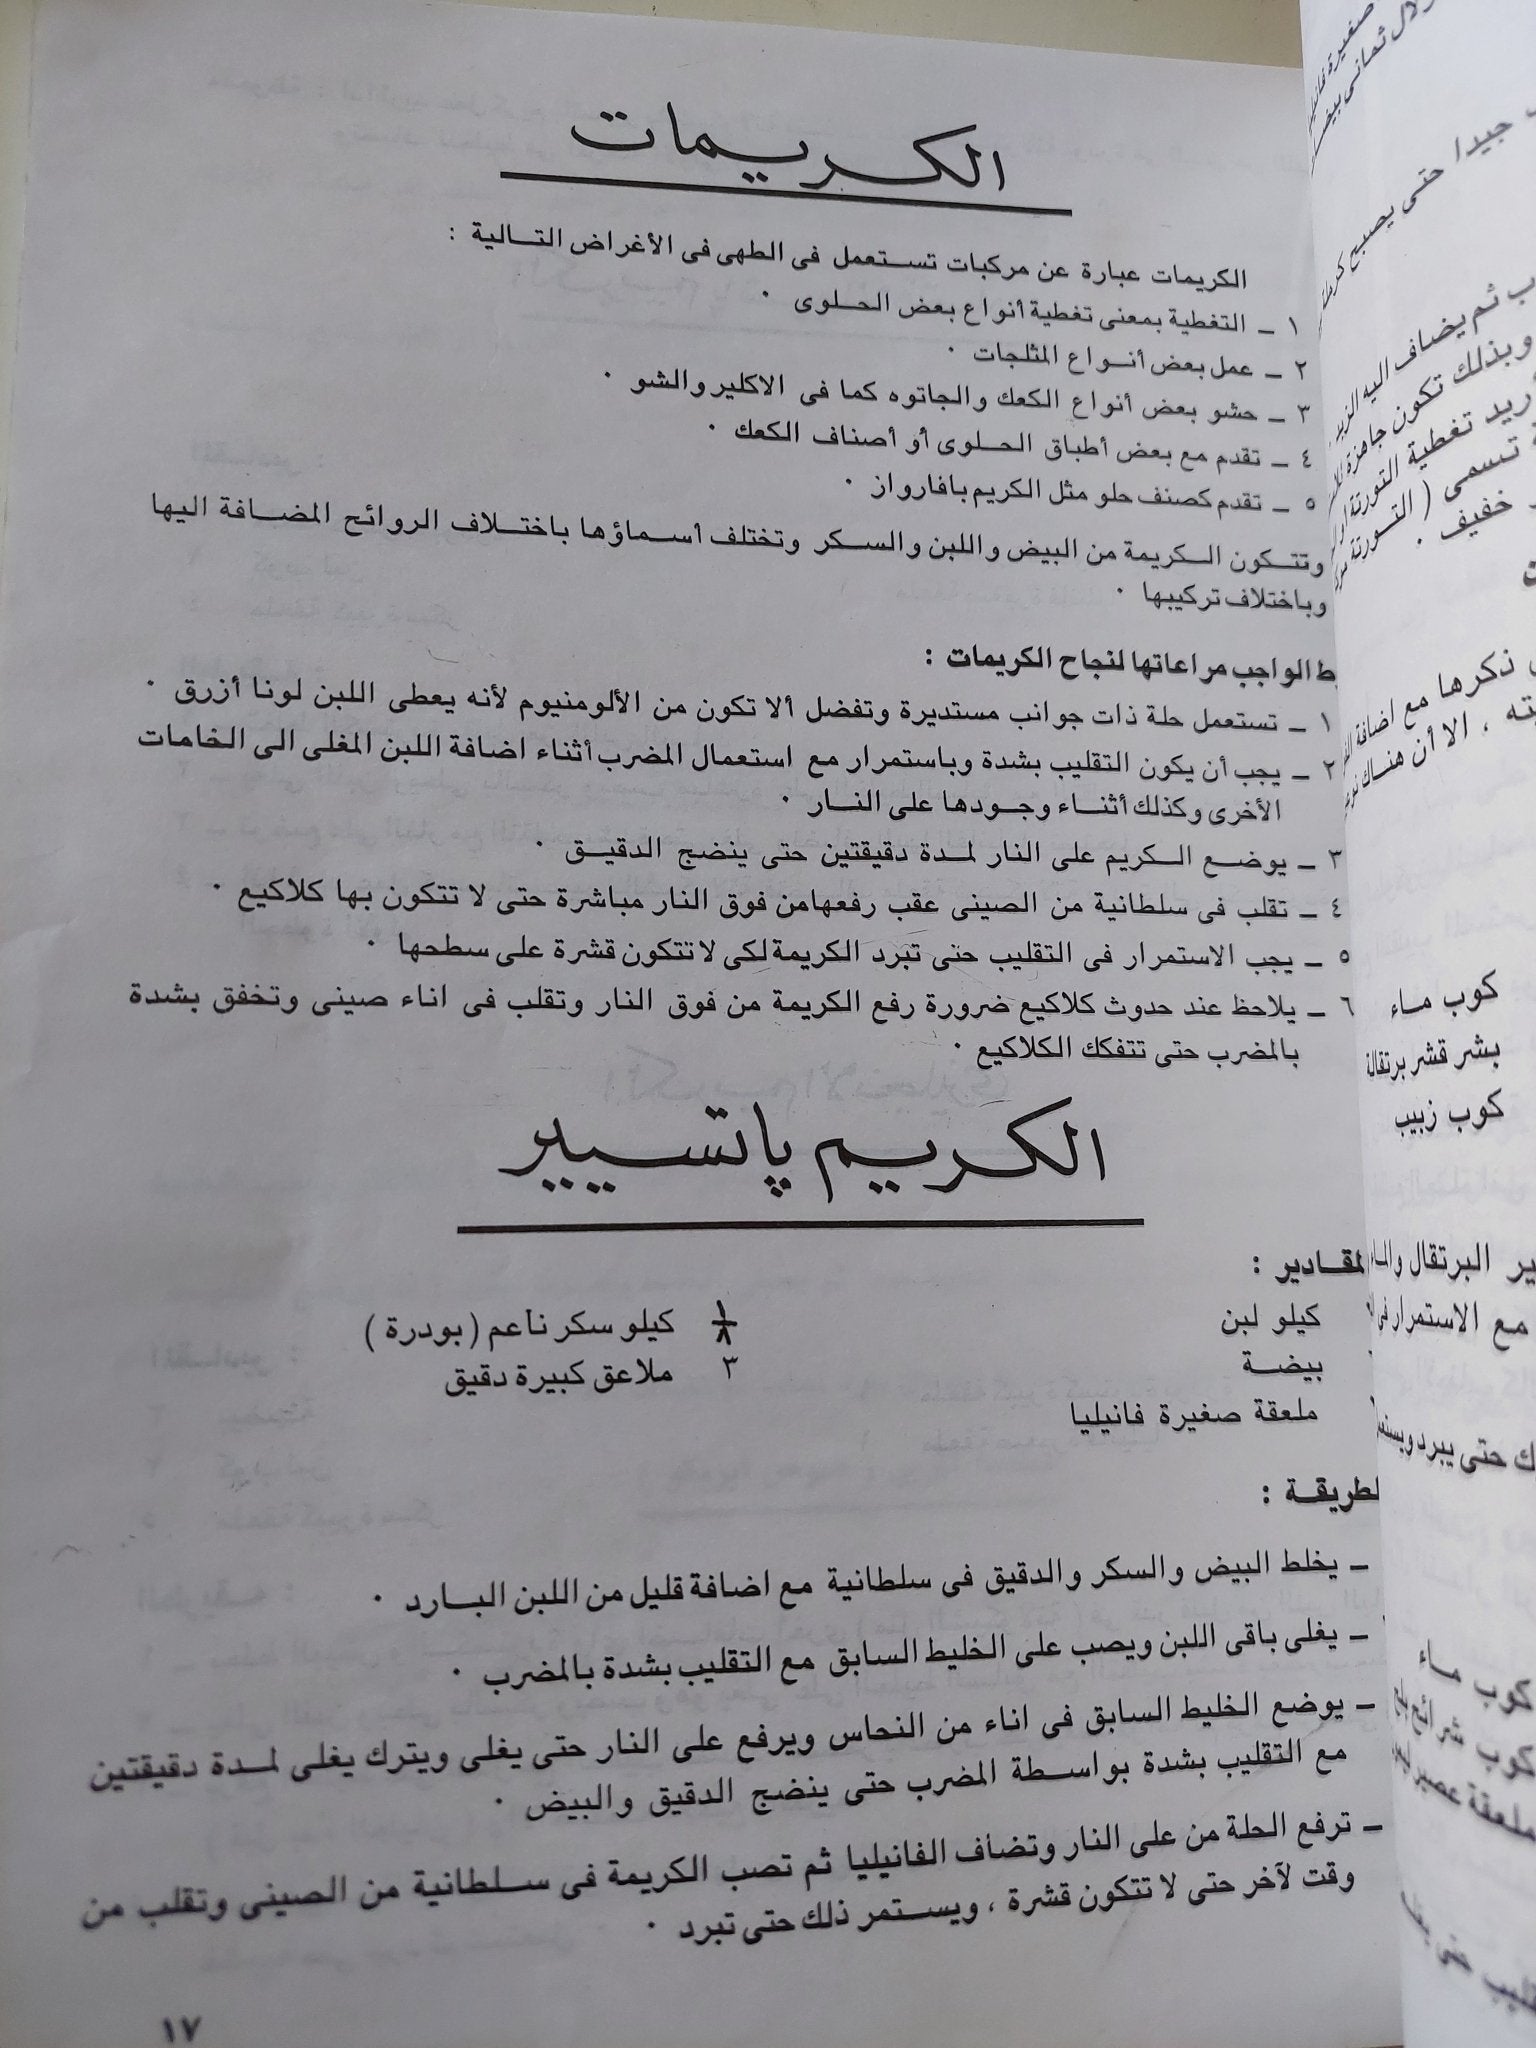 الكريمات
الكريمات عبارة عن مركبات تستعمل فى الطهى فى الأغراض التالية :
١ ــ التغطية بمعنى تغطية أنواع بعض الحلوى ٠
٢ ــ عمل بعض أنواع المثلجات ٠
٣ ــ حشو بعض أنواع الكعك والجاتوه كما فى الاكلير والشو ٠
٤ ــ تقدم مع بعض أطباق الحلوى أو أصناف الكعك ٠
٥ ــ تقدم كصنف حلو مثل الكريم بافارواز ٠
وتتكون الكريمة من البيض واللبن والسكر وتختلف أسماؤها باختلاف الروائح المضافة اليها
وباختلاف تركيبها ٠
الواجب مراعاتها لنجاح الكريمات :
١ ــ تستعمل حلة ذات جوانب مستديرة وتفضل ألا تكون من الألومنيوم لأنه يعطى اللبن لونا أزرق ٠
٢ ــ يجب أن يكون التقليب بشدة وباستمرار مع استعمال المضرب أثناء اضافة اللبن المغلى الى الخامات
الأخرى وكذلك أثناء وجودها على النار ٠
٣ ــ يوضع الكريم على النار لمدة دقيقتين حتى ينضج الدقيق ٠
٤ ــ تقلب فى سلطانية من الصينى عقب رفعها من فوق النار مباشرة حتى لا تتكون بها كلاكيع ٠
٥ ــ يجب الاستمرار فى التقليب حتى تبرد الكريمة لكى لا تتكون قشرة على سطحها ٠
٦ ــ يلاحظ عند حدوث كلاكيع ضرورة رفع الكريمة من فوق النار وتقلب فى اناء صينى وتخفق بشدة
بالمضرب حتى تتفكك الكلاكيع ٠
الكريم پاتسيير
لمقادير :
كيلو لبن
⅛ كيلو سكر ناعم ( بودرة )
بيضة
٣ ملاعق كبيرة دقيق
ملعقة صغيرة فانيليا
لطريقة :
ــ يخلط البيض والسكر والدقيق فى سلطانية مع اضافة قليل من اللبن البارد ٠
ــ يغلى باقى اللبن ويصب على الخليط السابق مع التقليب بشدة بالمضرب ٠
ــ يوضع الخليط السابق فى اناء من النحاس ويرفع على النار حتى يغلى ويترك يغلى لمدة دقيقتين
مع التقليب بشدة بواسطة المضرب حتى ينضج الدقيق والبيض ٠
ــ ترفع الحلة من على النار وتضاف الفانيليا ثم تصب الكريمة فى سلطانية من الصينى وتقلب من
وقت لآخر حتى لا تتكون قشرة ، ويستمر ذلك حتى تبرد ٠
١٧
جيدا حتى يصبح
ثم يضاف اليه الزبد
وبذلك تكون جاهزة
تغطية التورتة
تسمى ( التورتة
خفيف ٠
ذكرها مع اضافة
، الا أن هناك
كوب ماء
بشر قشر برتقالة
كوب زبيب
البرتقال
مع الاستمرار فى
حتى يبرد
كوب ماء
كوب شرائح
ملعقة عصير